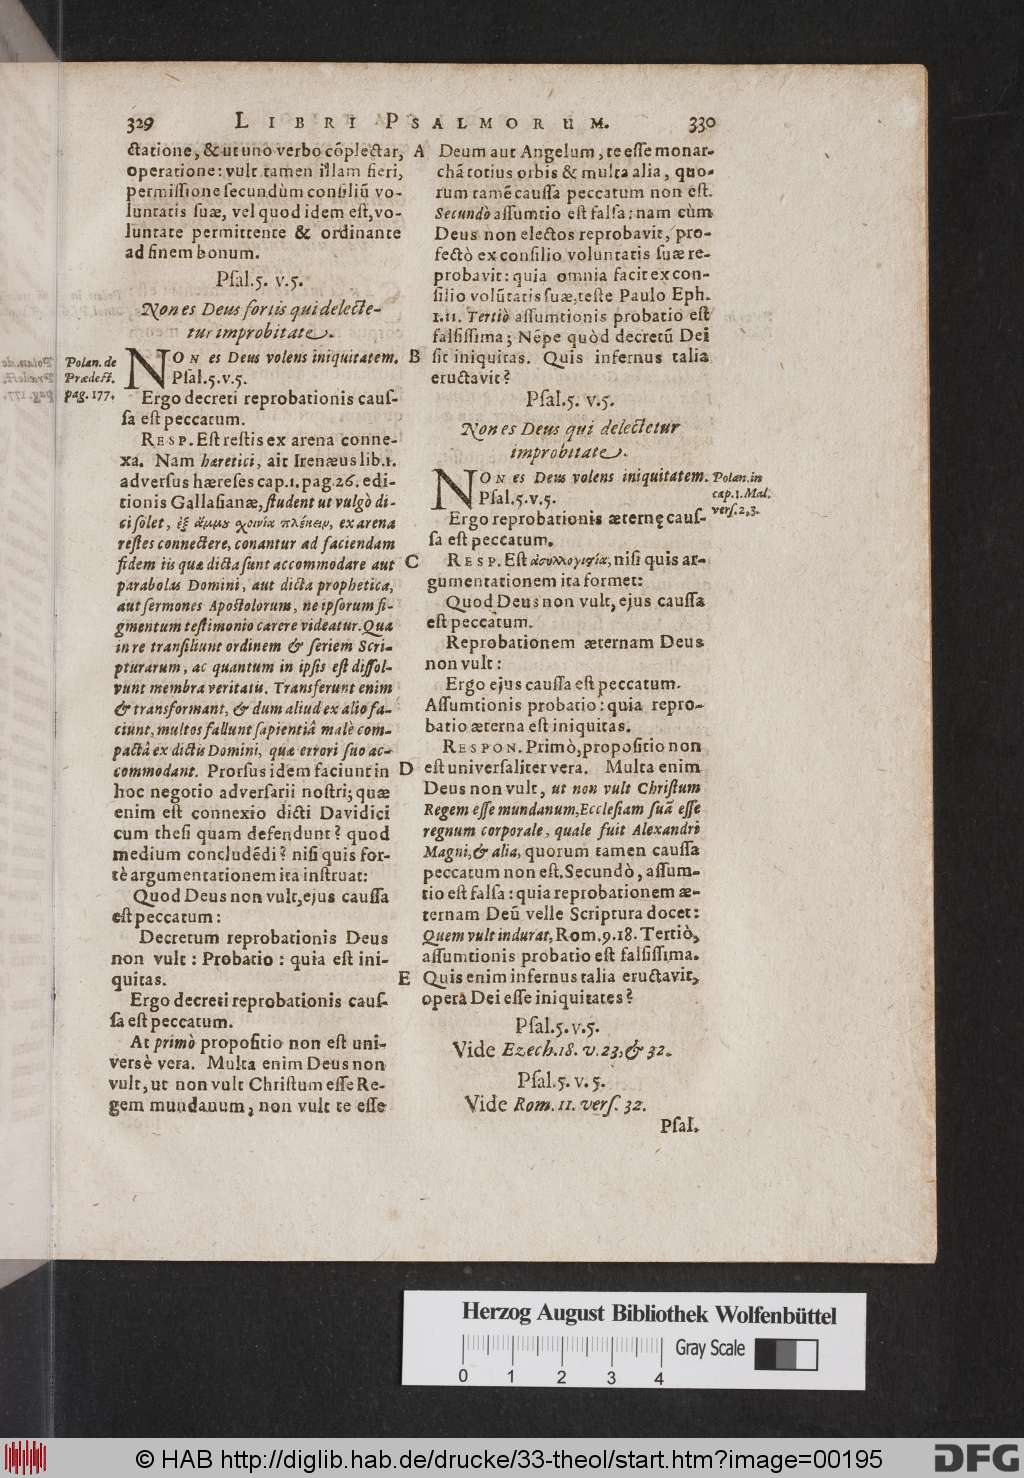 329 LIBRI PSALMORUM. 330
ctatione, & ut uno verbo cōplectar,
operatione: vult tamen illam fieri,
permissione secundùm consiliū vo-
luntatis suæ, vel quod idem est, vo-
luntate permittente & ordinante
ad finem bonum.
Psal. 5. v. 5.
Non es Deus fortis qui delecte-
tur improbitate.
Polan. de
Prædest.
pag. 177.
NON es Deus volens iniquitatem.
Psal. 5. v. 5.
Ergo decreti reprobationis caus-
sa est peccatum.
RESP. Est restis ex arena conne-
xa. Nam hæretici, ait Irenæus lib. 1.
adversus hæreses cap. 1. pag. 26. edi-
tionis Gallasianæ, student ut vulgò di-
ci solet, ἐξ ἄμμου χοινία πλέκειν, ex arena
restes connectere, conantur ad faciendam
fidem iis quæ dicta sunt accommodare aut
parabolas Domini, aut dicta prophetica,
aut sermones Apostolorum, ne ipsorum fi-
gmentum testimonio carere videatur. Qua
in re transiliunt ordinem & seriem Scri-
pturarum, ac quantum in ipsis est dissol-
vunt membra veritatis. Transferunt enim
& transformant, & dum aliud ex alio fa-
ciunt, multos fallunt sapientiâ malè com-
pactâ ex dictis Domini, quæ errori suo ac-
commodant. Prorsus idem faciunt in
hoc negotio adversarii nostri; quæ
enim est connexio dicti Davidici
cum thesi quam defendunt? quod
medium concludēdi? nisi quis for-
tè argumentationem ita instruat:
Quod Deus non vult, ejus caussa
est peccatum:
Decretum reprobationis Deus
non vult: Probatio: quia est ini-
quitas.
Ergo decreti reprobationis caus-
sa est peccatum.
At primò propositio non est uni-
versè vera. Multa enim Deus non
vult, ut non vult Christum esse Re-
gem mundanum, non vult te esse
A
B
C
D
E
Deum aut Angelum, te esse monar-
chā totius orbis & multa alia, quo-
rum tamē caussa peccatum non est.
Secundò assumtio est falsa: nam cùm
Deus non electos reprobavit, pro-
fectò ex consilio voluntatis suæ re-
probavit: quia omnia facit ex con-
silio volūtatis suæ, teste Paulo Eph.
1. 11. Tertiò assumtionis probatio est
falsissima; Nēpe quòd decretū Dei
sit iniquitas. Quis infernus talia
eructavit?
Psal. 5. v. 5.
Non es Deus qui delectetur
improbitate.
NON es Deus volens iniquitatem.
Psal. 5. v. 5.
Polan. in
cap. 1. Mal.
vers. 2, 3.
Ergo reprobationis æternę caus-
sa est peccatum.
RESP. Est ἀσυλλογισία, nisi quis ar-
gumentationem ita formet:
Quod Deus non vult, ejus caussa
est peccatum.
Reprobationem æternam Deus
non vult:
Ergo ejus caussa est peccatum.
Assumtionis probatio: quia repro-
batio æterna est iniquitas.
RESPON. Primò, propositio non
est universaliter vera. Multa enim
Deus non vult, ut non vult Christum
Regem esse mundanum, Ecclesiam suā esse
regnum corporale, quale fuit Alexandri
Magni, & alia, quorum tamen caussa
peccatum non est. Secundò, assum-
tio est falsa: quia reprobationem æ-
ternam Deū velle Scriptura docet:
Quem vult indurat, Rom. 9. 18. Tertiò,
assumtionis probatio est falsissima.
Quis enim infernus talia eructavit,
opera Dei esse iniquitates?
Psal. 5. v. 5.
Vide Ezech. 18. v. 23, & 32.
Psal. 5. v. 5.
Vide Rom. 11. vers. 32.
Psal.
Herzog August Bibliothek Wolfenbüttel
Gray Scale
0 1 2 3 4
© HAB http://diglib.hab.de/drucke/33-theol/start.htm?image=00195
DFG